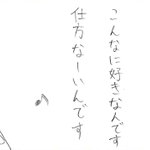 こんなに好きなんです
仕方ないんです